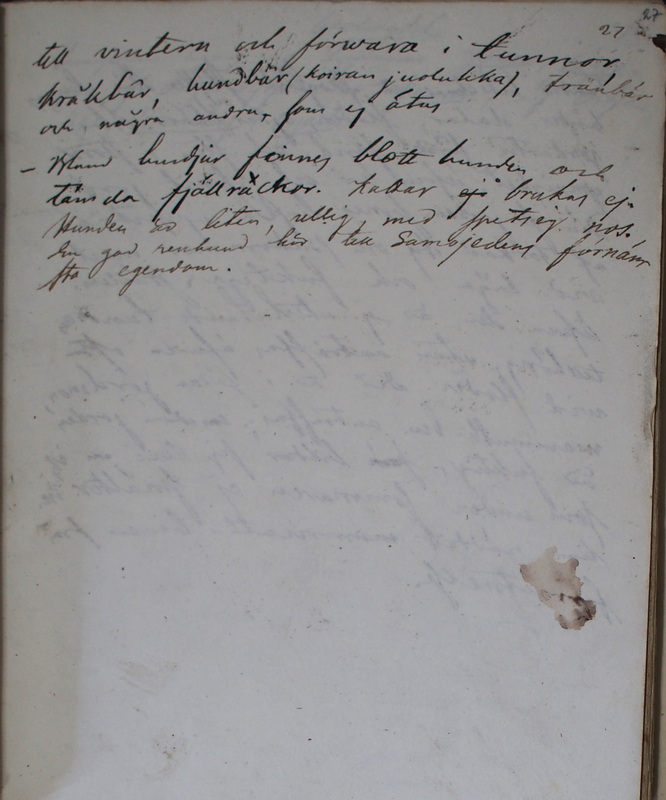 27
27
till vintern och förwara i tunnor
Kråkbär, hundbär (Koiran juolukka), tranbär
och några andra, som ej ätas
– Bland husdjur finnes blott hunden och
tämda fjällräckor. Kattor ej brukas ej.
Hunden är liten, ullig, med spetsig nos.
En god renhund hör till Samojedens förnäm
sta egendom.